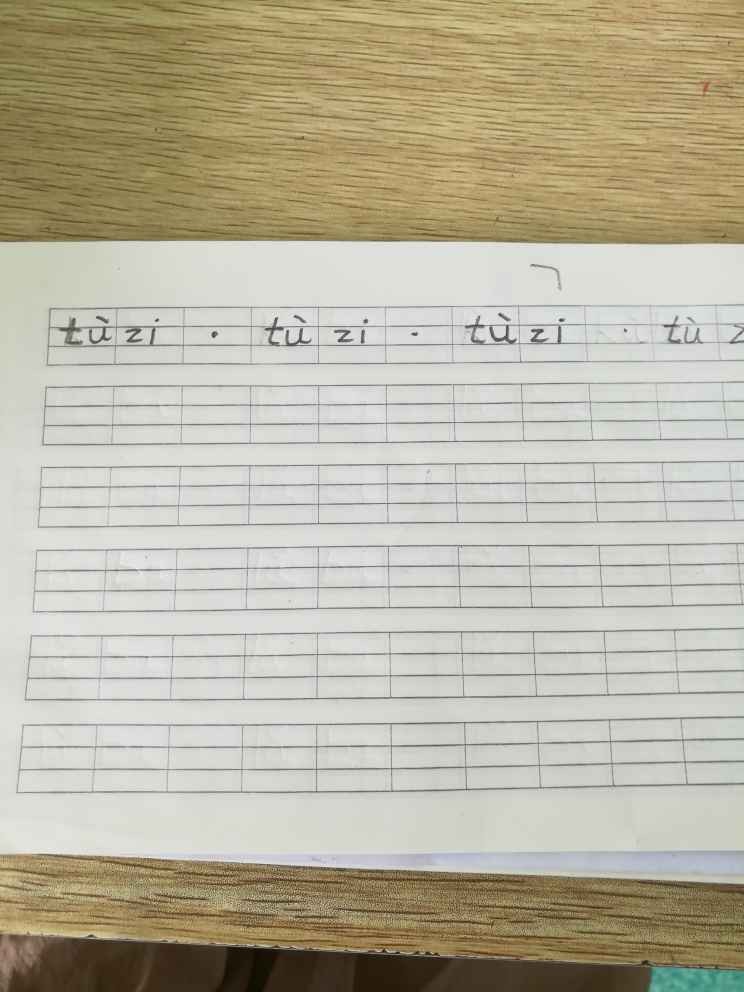 tù zi · tù zi · tù zi · tù z